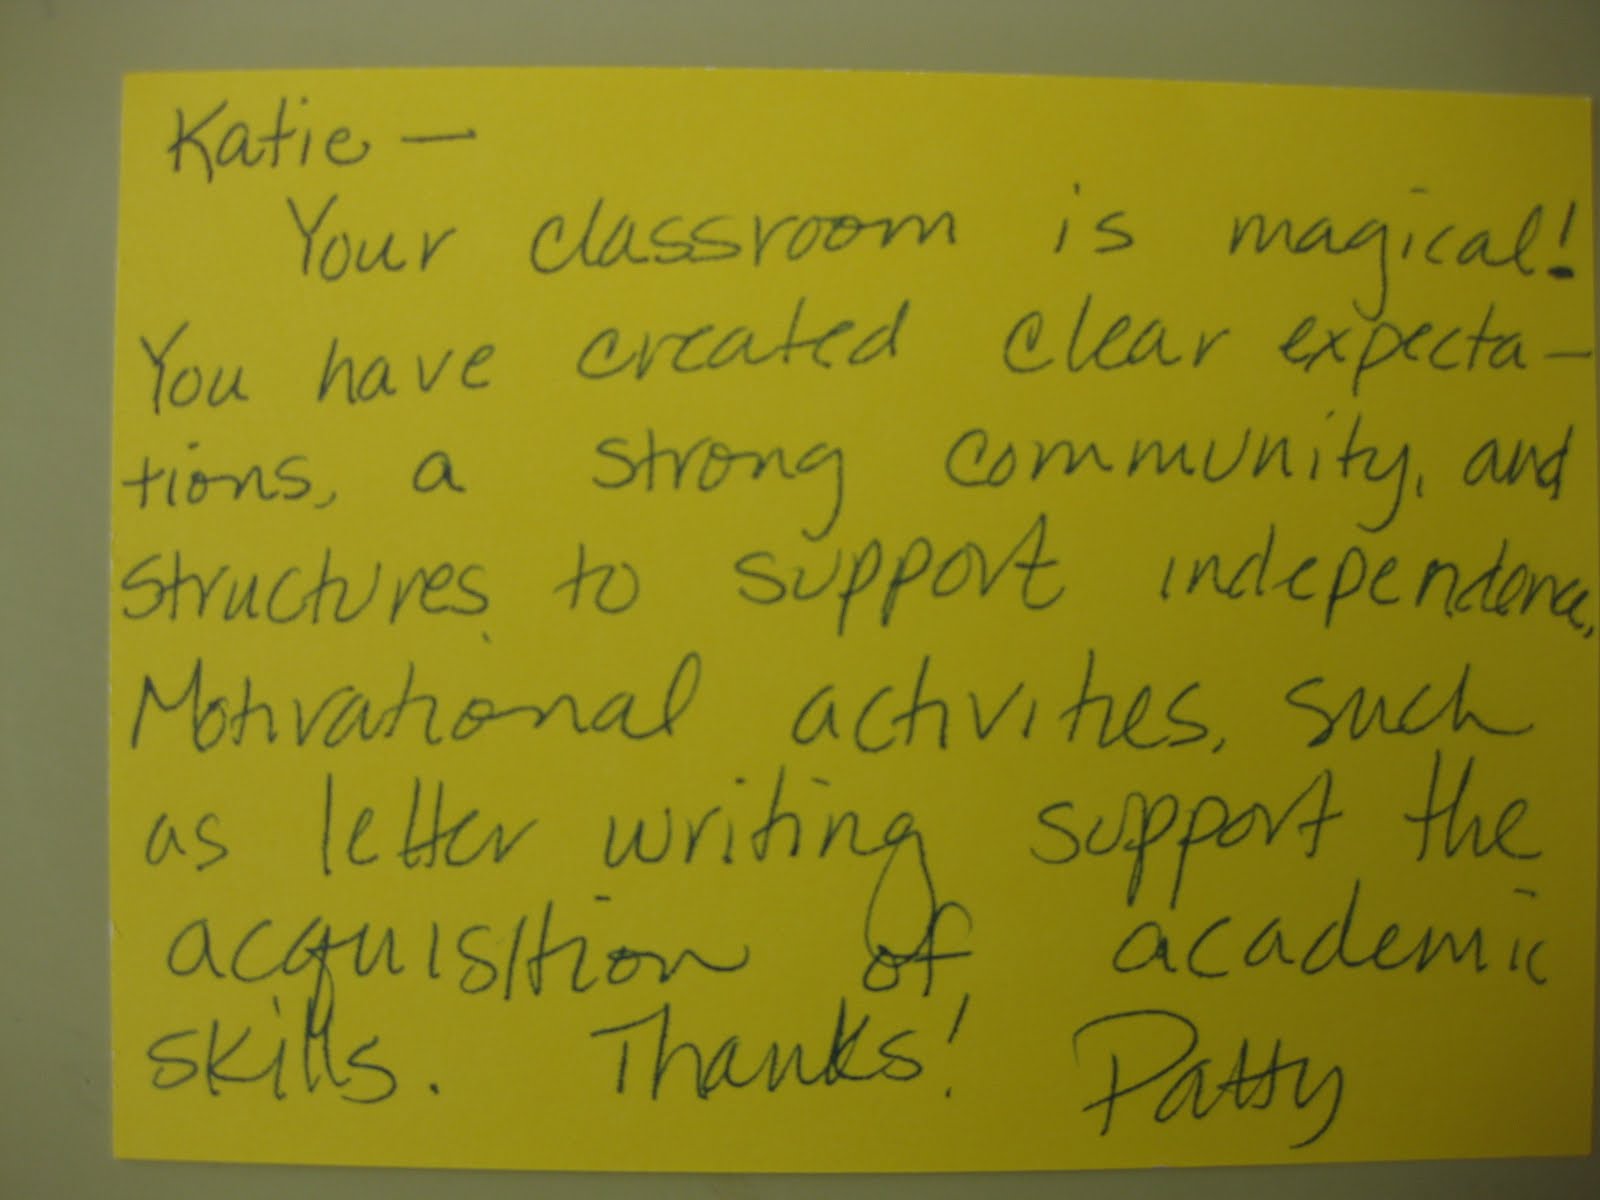 Katie —
Your classroom is magical!
You have created clear expecta-
tions, a strong community, and
structures to support independence.
Motivational activities, such
as letter writing support the
acquisition of academic
skills. Thanks! Patty